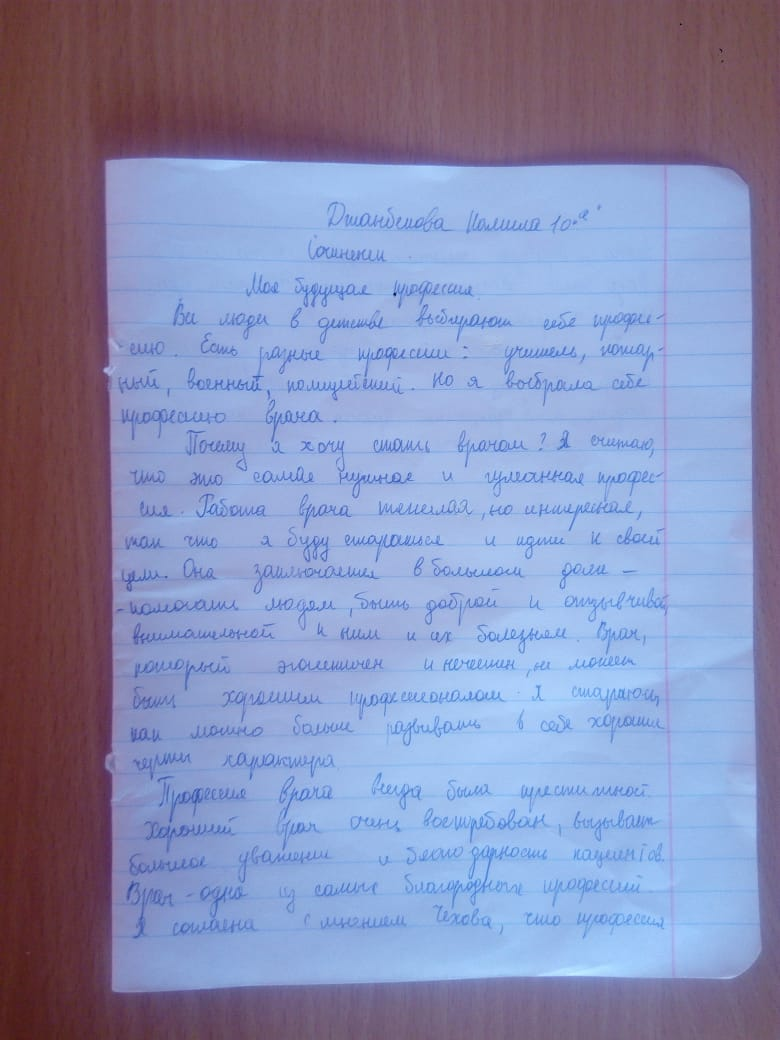 Джанбекова Камила 10 "а"
Сочинении.
Моя будущая профессия.
Все люди в детстве выбирают себе профес-
сию. Есть разные профессии: учитель, пожар-
ный, военный, полицейский. Но я выбрала себе
профессию врача.
Почему я хочу стать врачом? Я считаю,
что это самая нужная и гуманная профес-
сия. Работа врача тяжелая, но интересная,
так что я буду стараться и идти к своей
цели. Она заключается в большом долге -
- помогать людям, быть доброй и отзывчивой,
внимательной к ним и их болезням. Врач,
который эгоистичен и нечестен, не может
быть хорошим профессионалом. Я стараюсь,
как можно больше развивать в себе хорошие
черты характера.
Профессия врача всегда была престижной.
Хороший врач очень востребован, вызывает
большое уважении и благодарность пациентов.
Врач - одна из самых благородных профессий.
Я согласна с мнением Чехова, что профессия